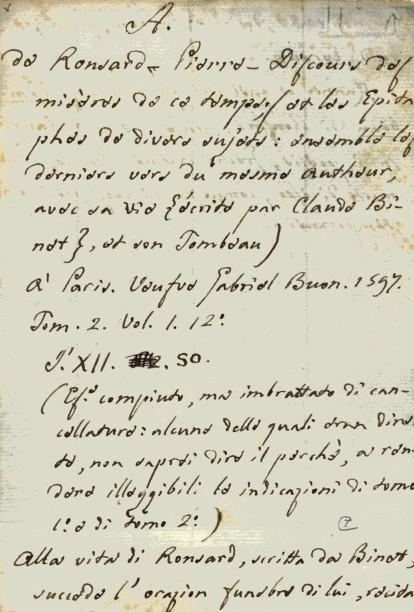 A.
de Ronsard Pierre - Discours des
misères de ce temps, (et les Epita
phes de divers sujets: ensemble les
derniers vers du mesme Autheur,
avec sa Vie {écrite par Claude Bi-
net}, et son Tombeau)
A' Paris. Veufve Gabriel Buon. 1597.
Tom. 2. Vol. 1. 12°
I.' XII. 50.
(Es.e compiuto, ma imbrattato di can-
cellature: alcune delle quali eran diret
te, non saprei dire il perchè, a ren-
dere illeggibili le indicazioni di tomo
1.° e di tomo 2.°)
7
Alla vita di Ronsard, scritta da Binet,
succede l'orazion funebre di lui, recita